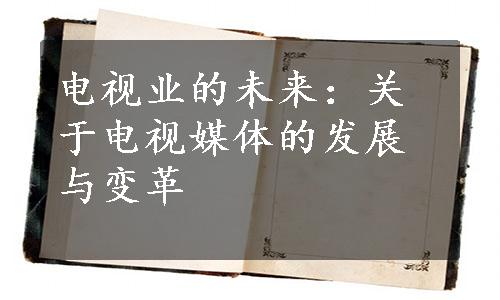 电视业的未来：关
于电视媒体的发展
与变革